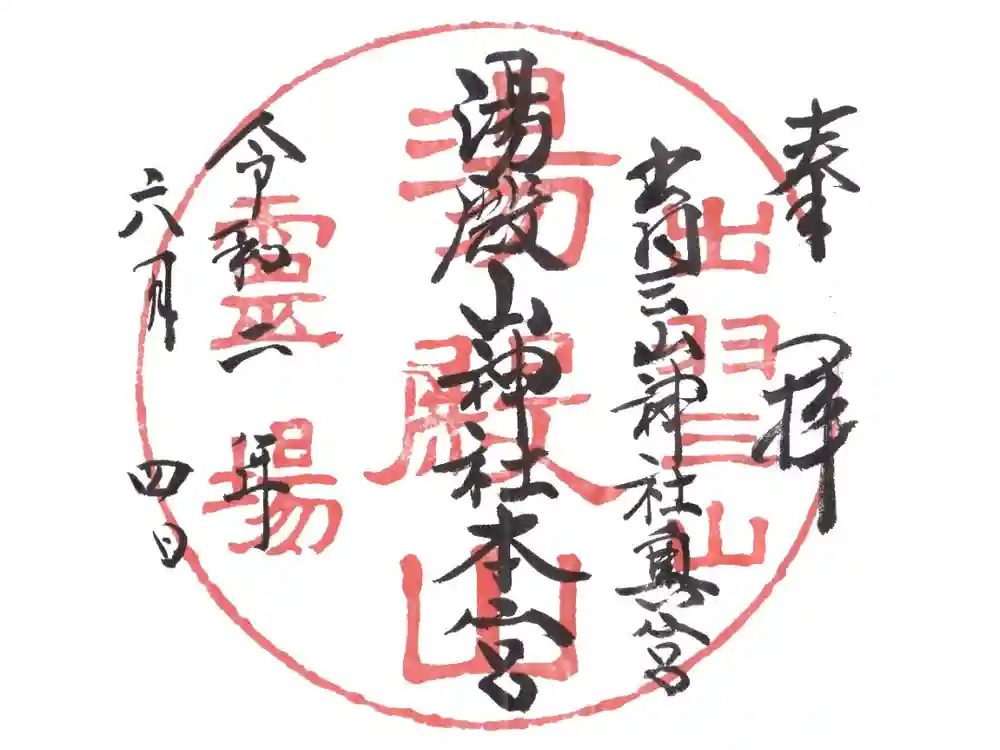 奉拝
出羽三山神社奥宮
湯殿山神社本宮
令和二年
六月四日
出羽三山
湯殿山
霊場